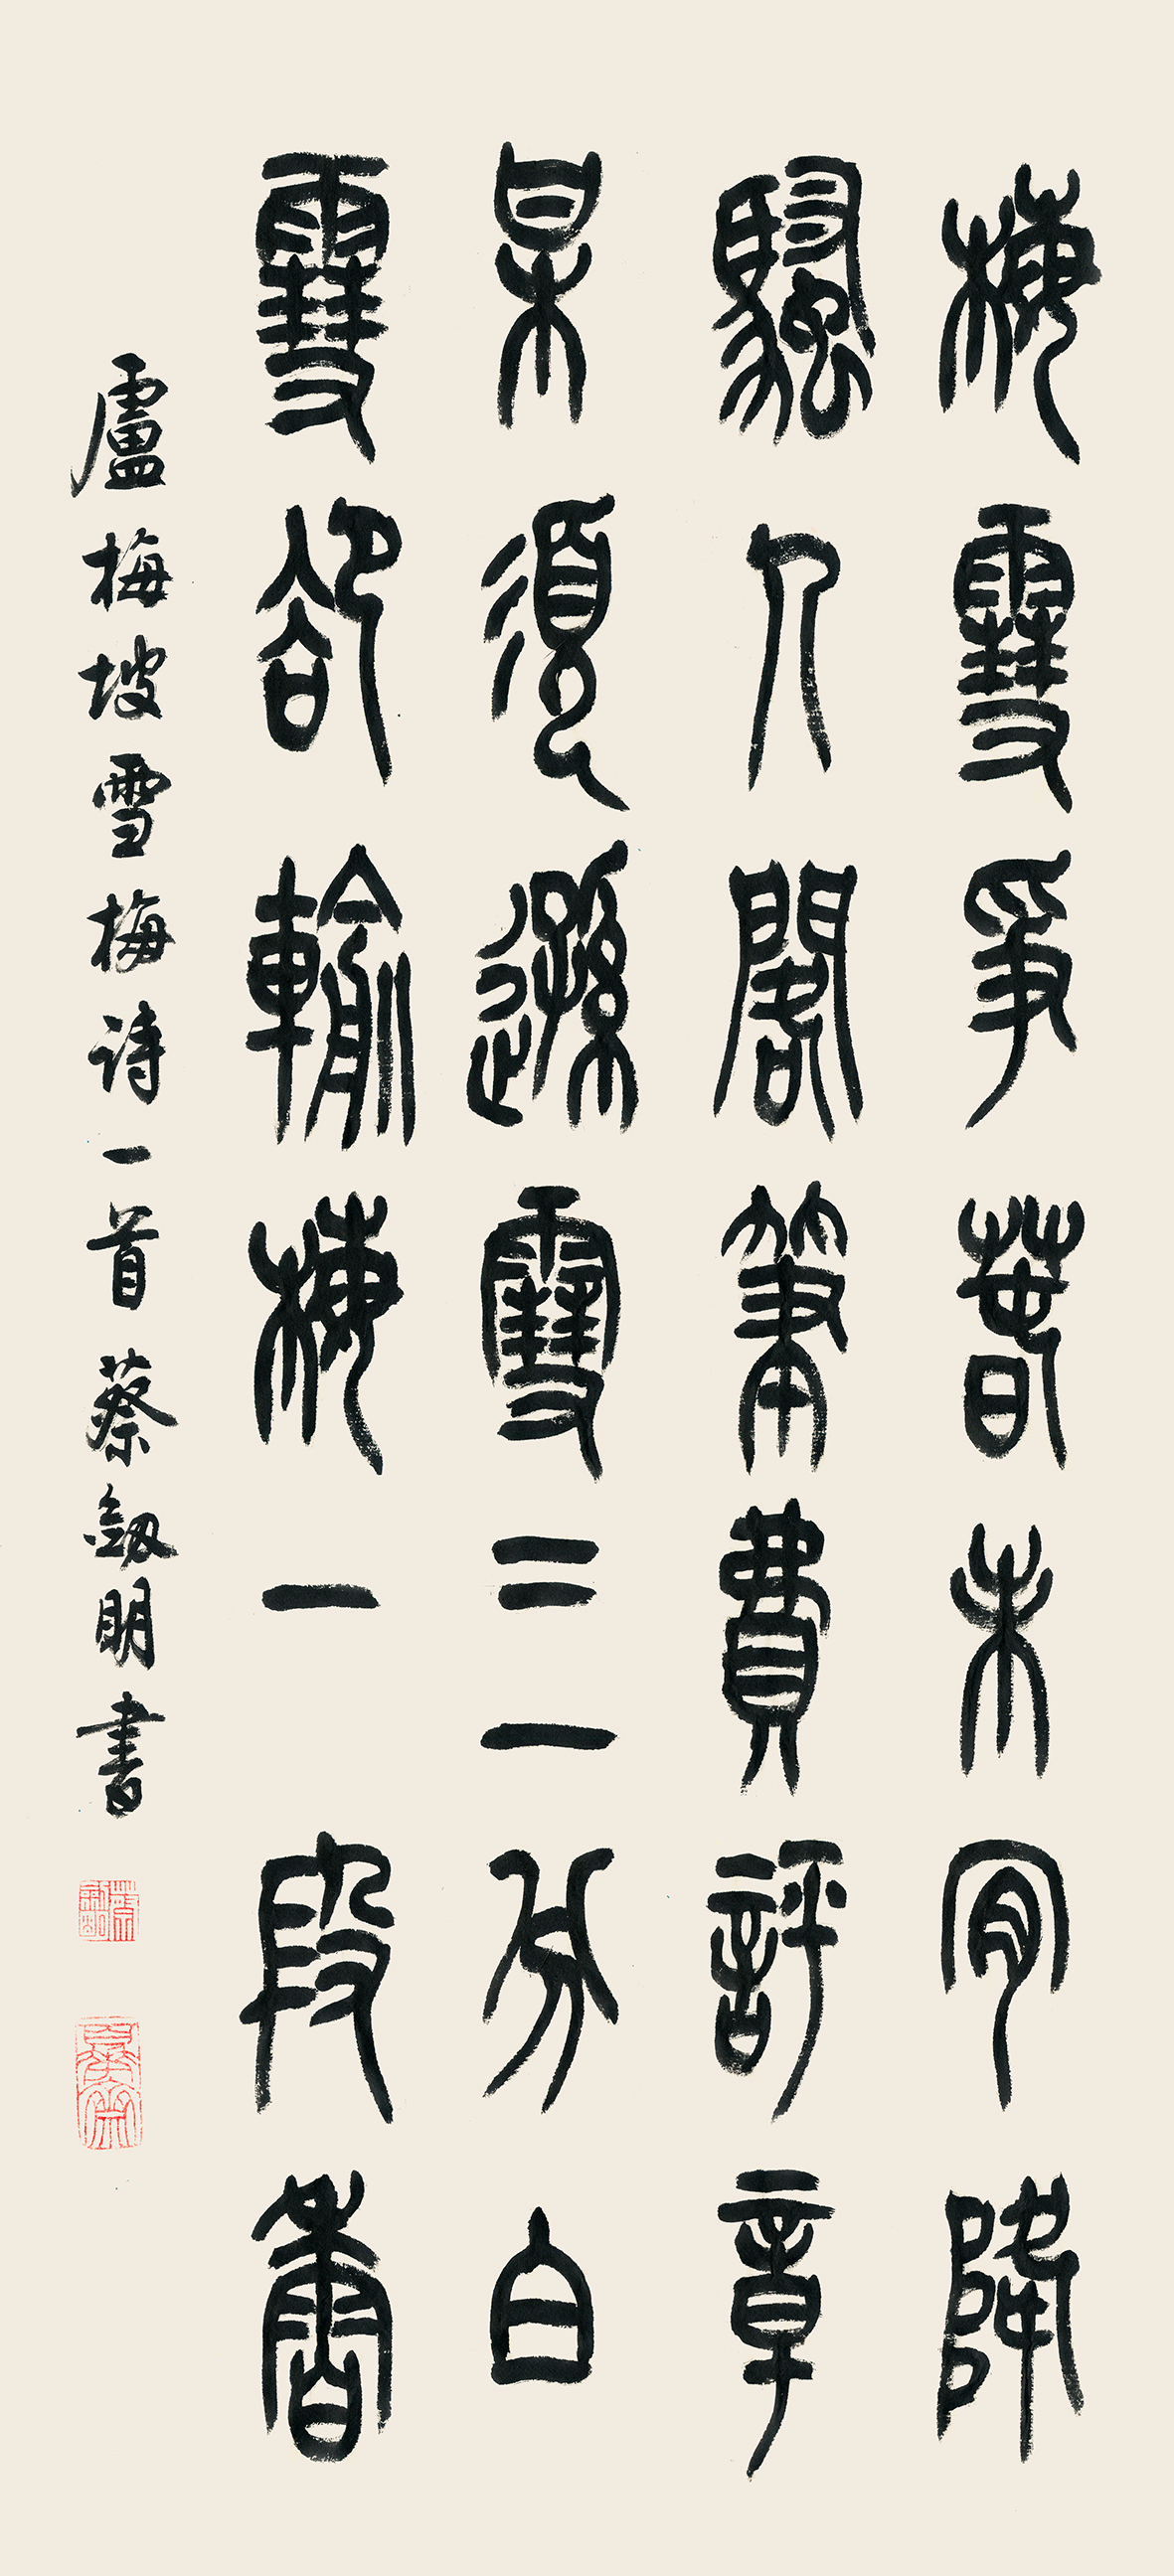 梅雪爭春未肎降
騷人閣筆費評章
某須遜雪三分白
雪卻輸梅一段香
盧梅坡雪梅詩一首 蔡劔明書